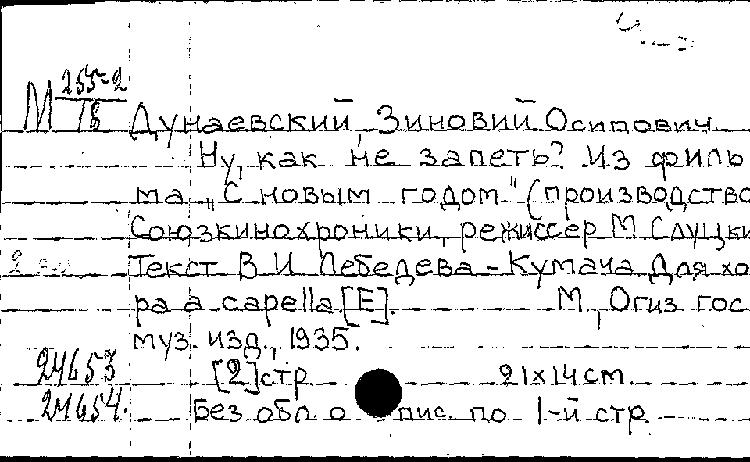 М 255-2
18
Дунаевский, Зиновий Осипович
Ну, как не запеть? Из филь
ма „С новым годом" (производство
Союзкинохроники, режиссер М Слуцки
Текст В И Лебедева-Кумача Для хо
ра a capella [Е]. М, Огиз гос
муз. изд., 1935.
24653 [2] стр 21х14 см.
24654. Без обл о пис. по 1-й стр